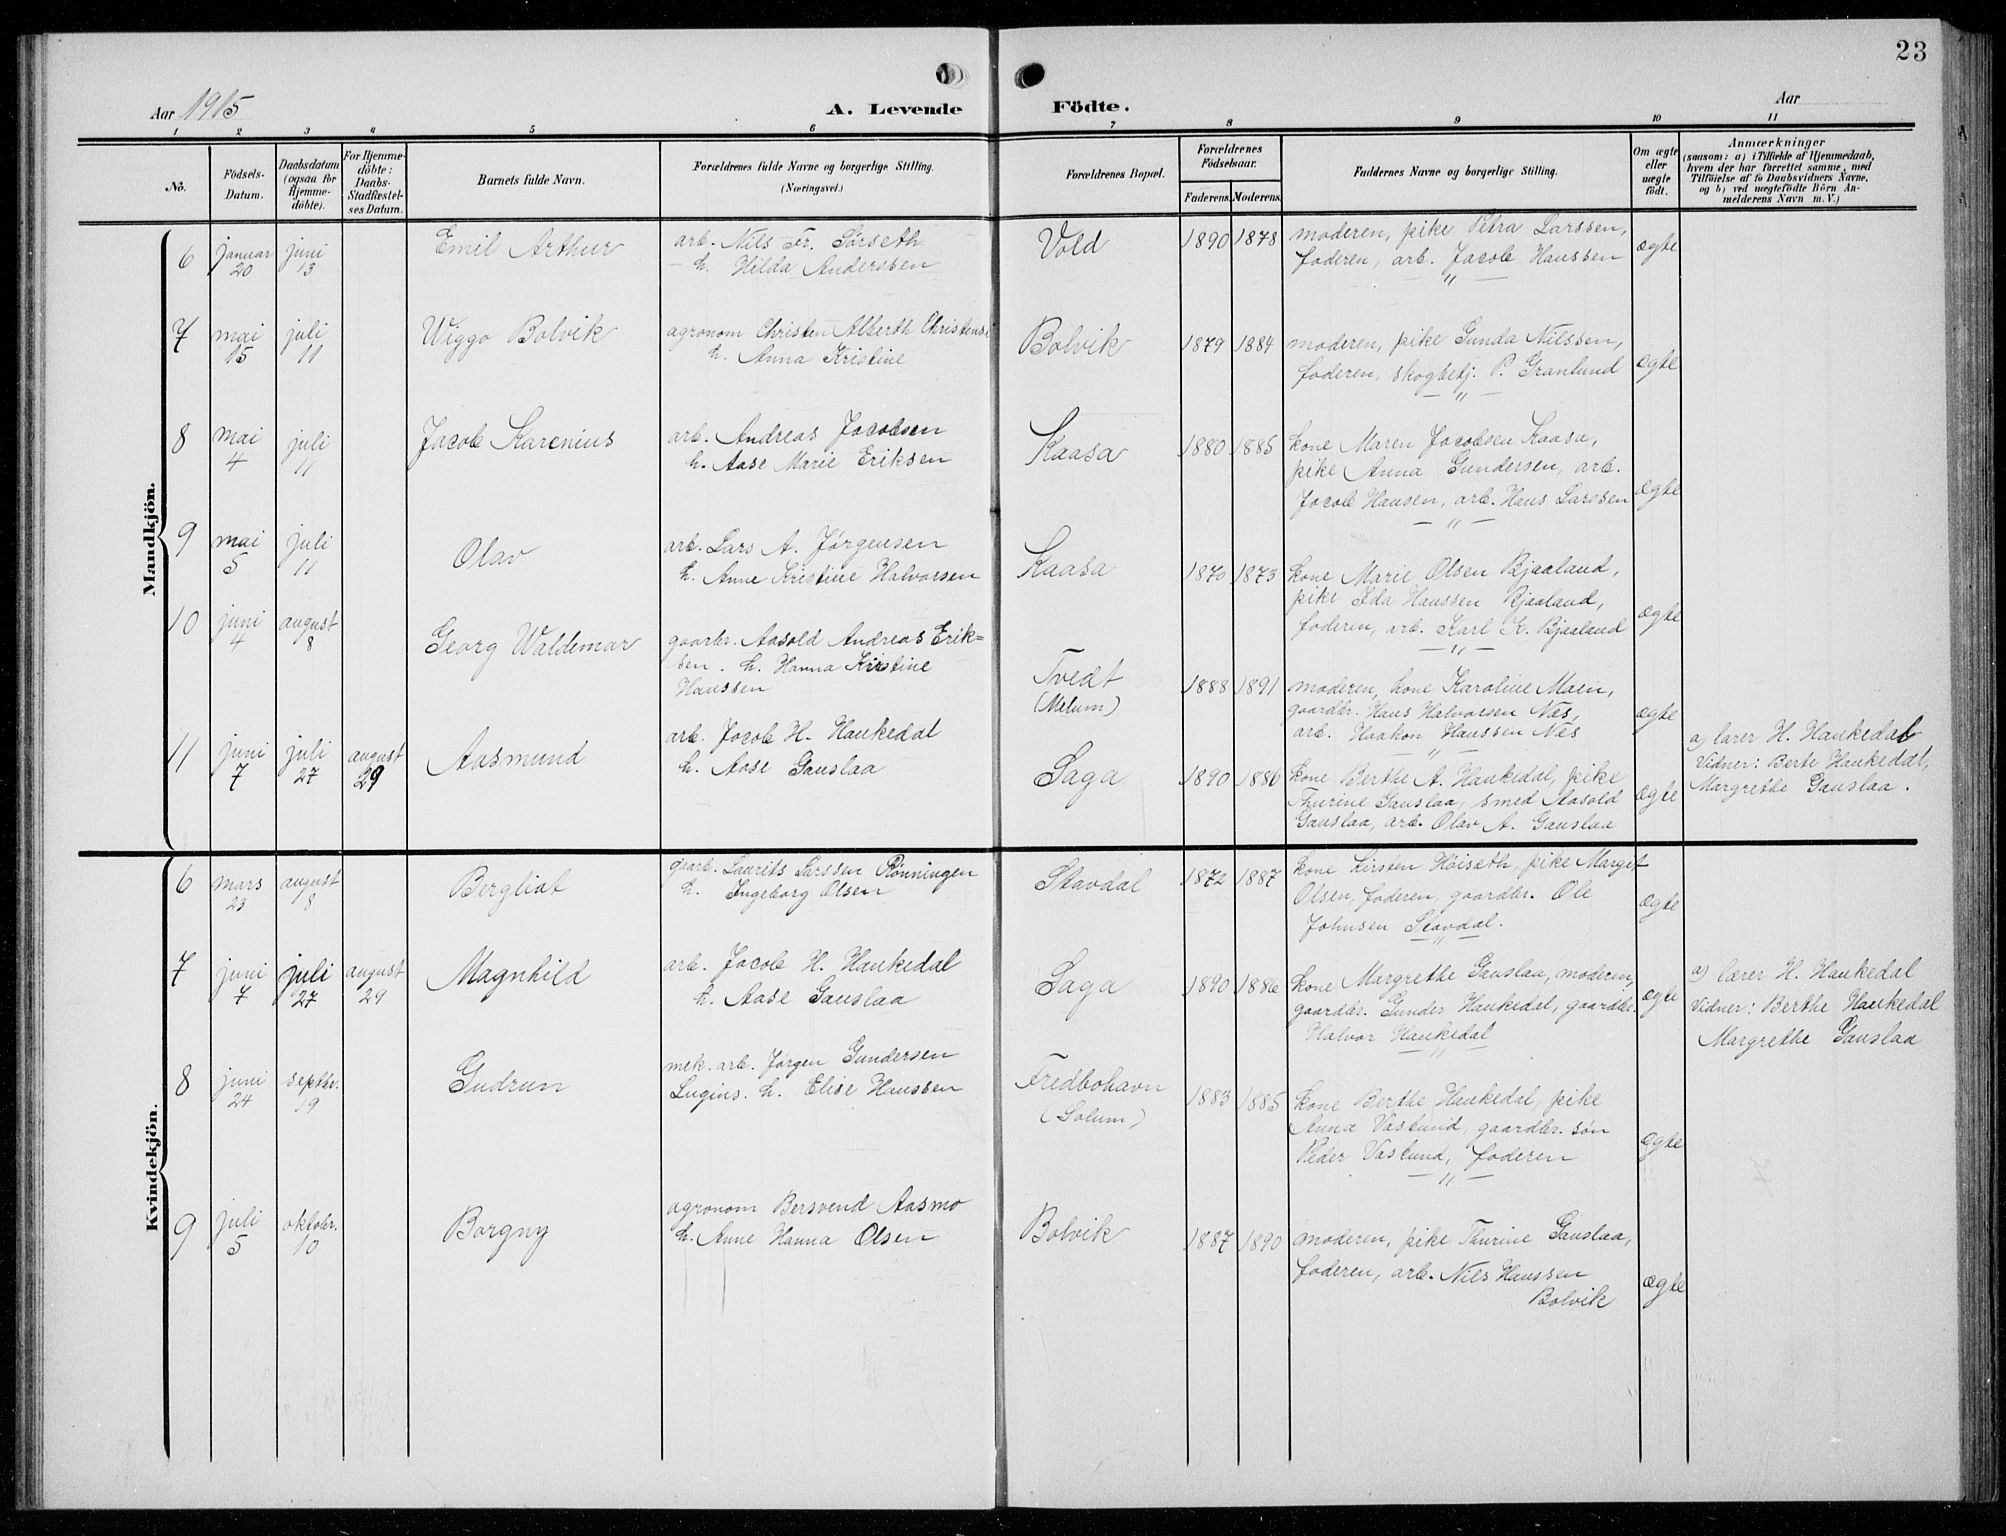 23
Aar 1915
A. Levende Födte.
Aar
1 2 3 4 5 6 7 8 9 10 11
No.
Födsels-
Datum.
Daabsdatum
(ogsaa for
Hjemme-
döbte).
For Hjemme-
döbte:
Daabs-
Stadfæstel-
ses Datum.
Barnets fulde Navn.
Forældrenes fulde Navne og borgerlige Stilling.
(Næringsvei.)
Forældrenes Bopæl.
Forældrenes
Födselsaar.
Faderens. Moderens.
Faddernes Navne og borgerlige Stilling.
Om ægte
eller
uægte
födt.
Anmærkninger
(saasom: a) i Tilfælde af Hjemmedaab,
hvem der har forrettet samme, med
Tilföielse af to Daabsvidners Navne,
og b) ved uægtefödte Börn An-
melderens Navn m. V.)
Mandkjön.
6 januar 20 juni 13
Emil Arthur
arb. Nils Fr. Sørseth
h. Hilda Anderssen
Vold
1890 1878
moderen, pike Petra Larssen,
faderen, arb. Jacob Hanssen
ægte
7 mai 15 juli 11
Wiggo Bolvik
agronom Christen Alberth Christensen
h. Anna Kristine
Bolvik
1879 1884
moderen, pike Gunda Nilssen,
faderen, skogbetj. P. Granlund
ægte
8 mai 4 juli 11
Jacob Karenius
arb. Andreas Jacobsen
h. Aase Marie Eriksen
Kaasa
1880 1885
kone Maren Jacobsen Kaasa,
pike Anna Gundersen, arb.
Jacob Hansen, arb. Hans Larssen
ægte
9 mai 5 juli 11
Olav
arb. Lars A. Jørgensen
h. Anne Kristine Halvorsen
Kaasa
1870 1873
kone Marie Olsen Bjaaland,
pike Ida Hanssen Bjaaland,
faderen, arb. Karl K. Bjaaland
ægte
10 juni 4 august 8
Georg Waldemar
gaardbr. Aasold Andreas Erik=
sen. h. Hanna Kristine
Hanssen
Tvedt
(Melum)
1888 1891
moderen, kone Karoline Moen,
gaardbr. Hans Halvorsen Næs,
arb. Haakon Hanssen Næs
ægte
11 juni 7 juli 27 august 29
Aasmund
arb. Jacob H. Haukedal
h. Aase Gauslaa
Saga
1890 1886
kone Berthe A. Haukedal, pike
Thurine Gauslaa, smed Aasold
Gauslaa, arb. Olav A. Gauslaa
ægte
a) lærer H. Haukedal
Vidner: Berte Haukedal,
Margrethe Gauslaa.
Kvindekjön.
6 mars 23 august 8
Bergliot
gaarb. Laurits Larssen Rønningen
h. Ingeborg Olsen
Stavdal
1872 1887
kone Kirsten Høiseth, pike Margit
Olsen, faderen, gaardbr. Ole
Johnsen Stavdal.
ægte
7 juni 7 juli 27 august 29
Magnhild
arb. Jacob H. Haukedal
h. Aase Gauslaa
Saga
1890 1886
kone Margrethe Gauslaa, moderen,
gaardbr. Gunder Haukedal, gaardbr.
Halvor Haukedal
ægte
a) lærer H. Haukedal
Vidner: Berthe Haukedal
Margrethe Gauslaa
8 juni 24 septbr. 19
Gudrun
mek. arb. Jørgen Gundersen
Lugins. h. Elise Hanssen
Fredbohavn
(Solum)
1883 1885
kone Berthe Haukedal, pike
Anna Vaslund, gaardbr. søn
Peder Vaslund, faderen
ægte
9 juli 5 oktobr. 10
Borgny
agronom Bersvend Aasmo
h. Anne Hanna Olsen
Bolvik
1887 1890
moderen, pike Thurine Gauslaa,
faderen, arb. Nils Hanssen
Bolvik
ægte